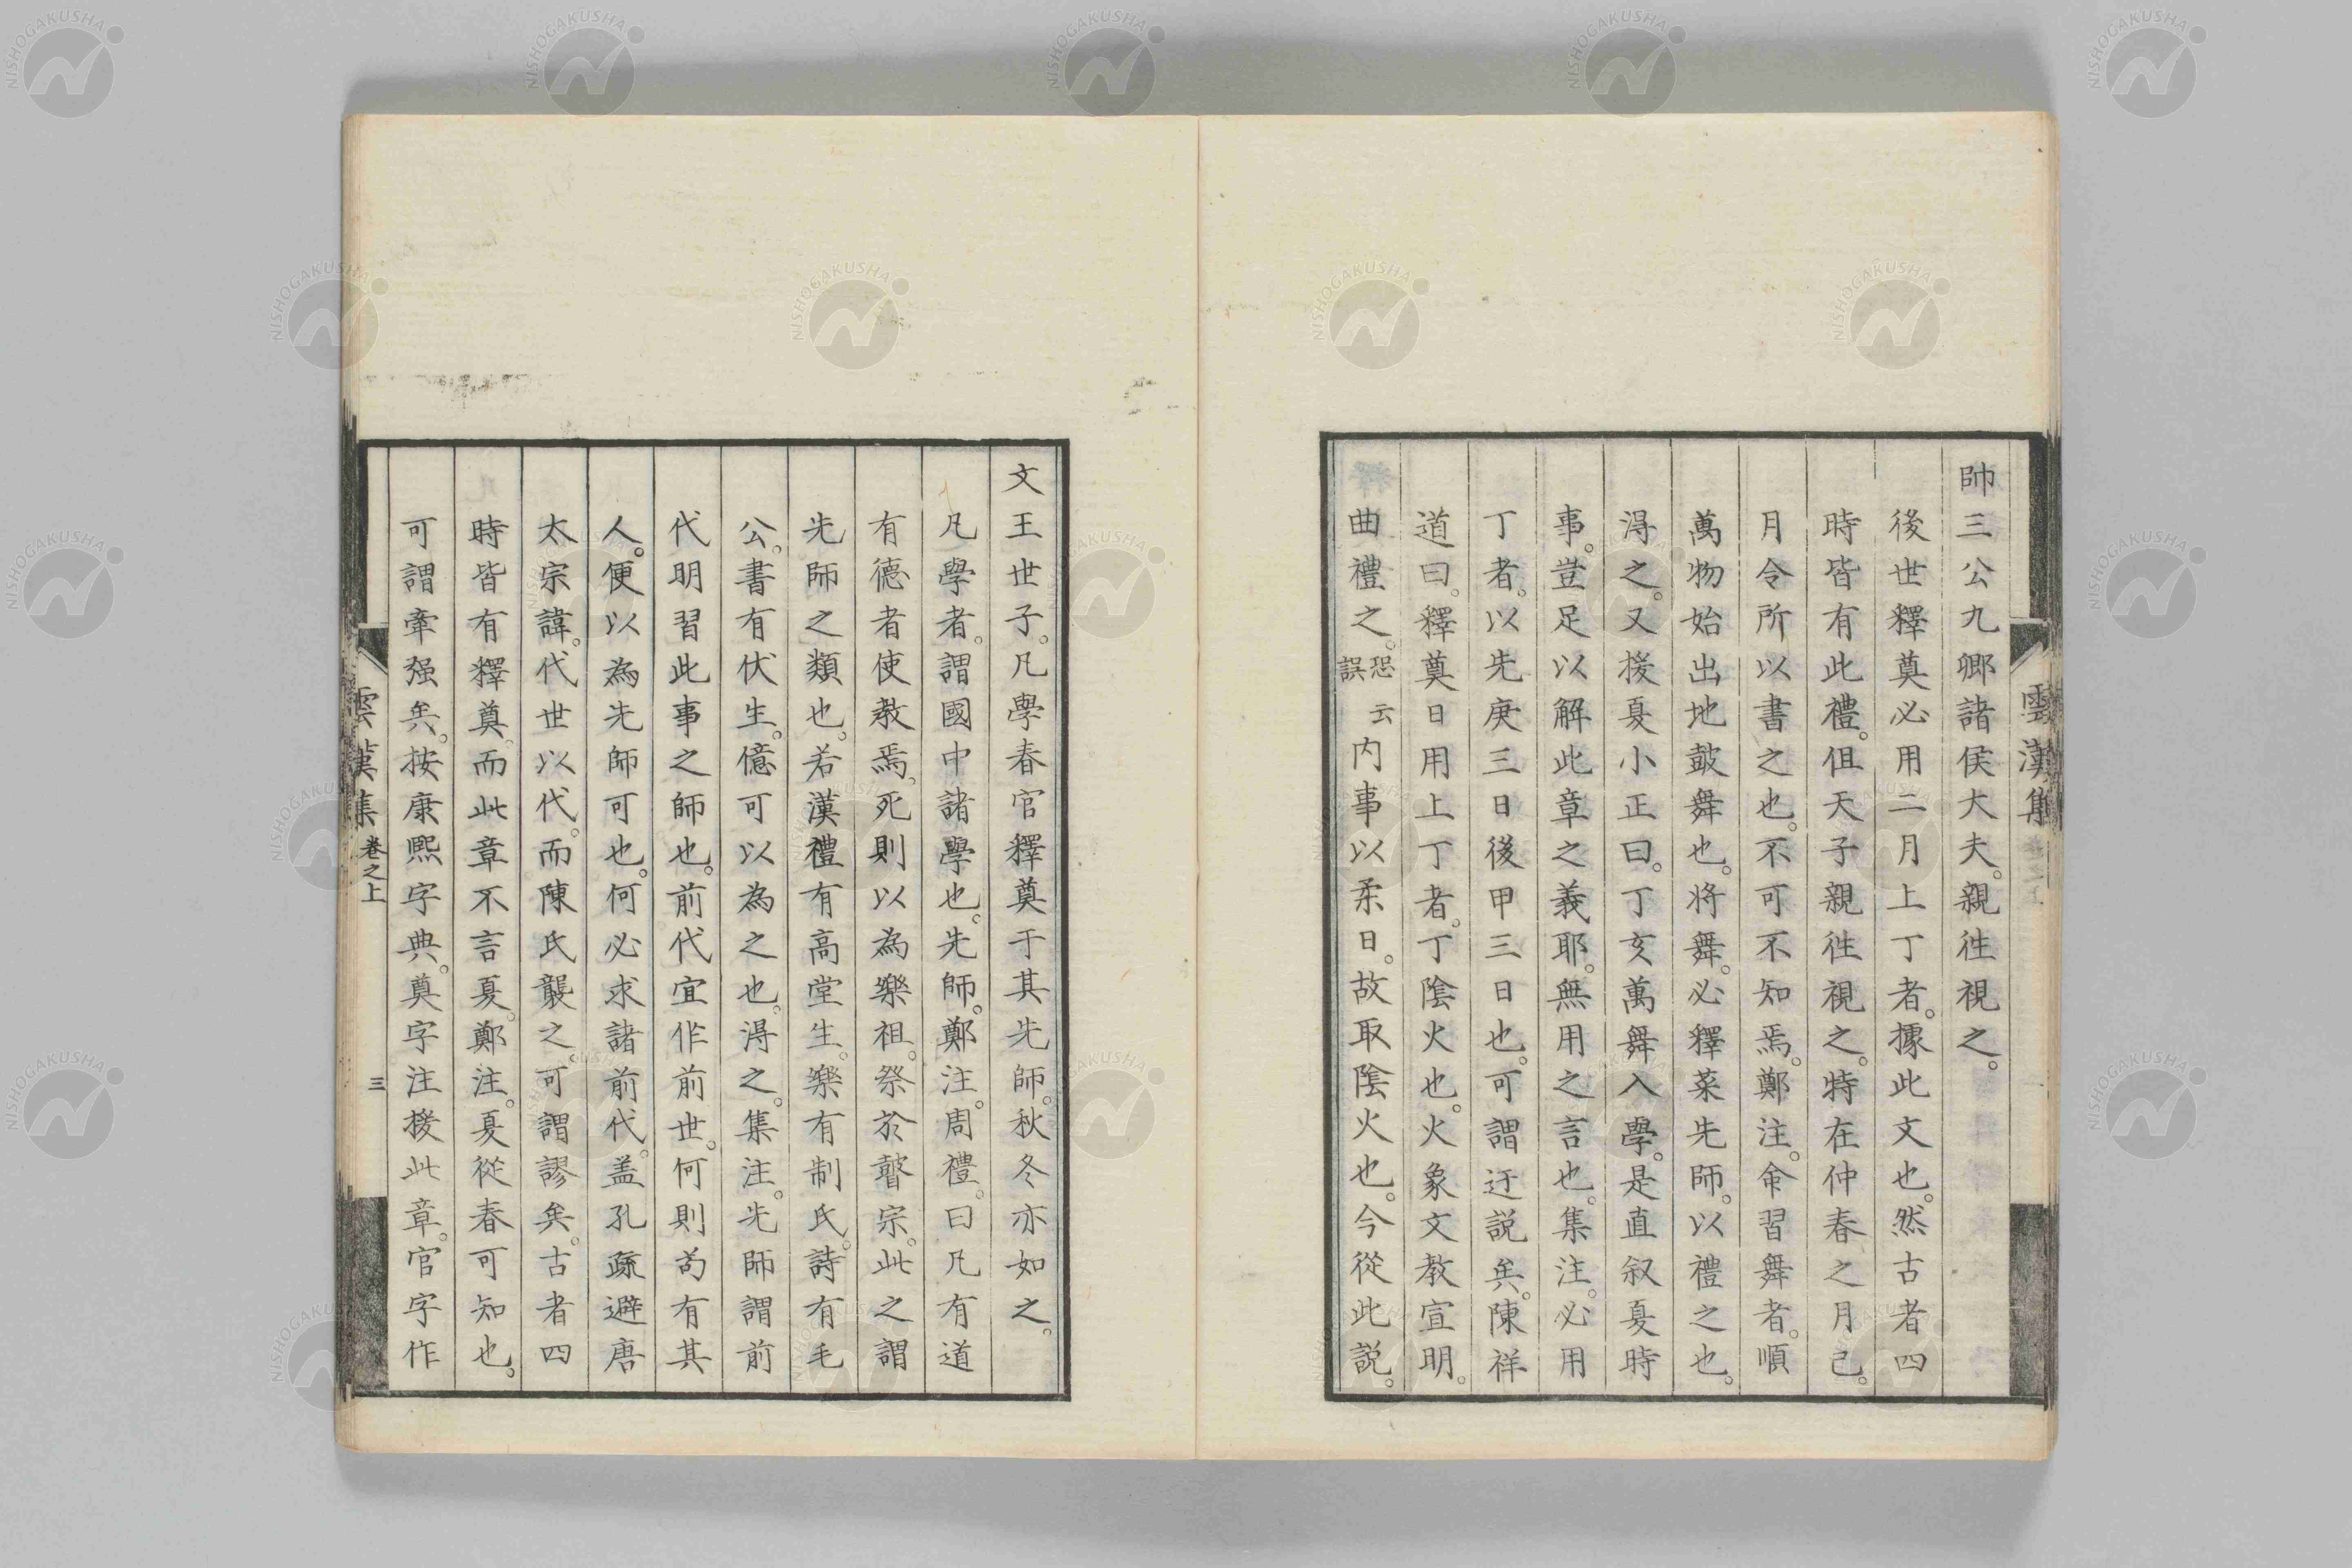 帥三公九卿諸侯大夫。親往視之。
後世釋奠必用二月上丁者。據此文也。然古者四
時皆有此禮。但天子親往視之。特在仲春之月已。
月令所以書之也。不可不知焉。鄭注。命習舞者。順
萬物始出地鼓舞也。将舞。必釋菜先師。以禮之也。
淂之。又援夏小正曰。丁亥萬舞入學。是直叙夏時
事。豈足以解此章之義耶。無用之言也。集注。必用
丁者。以先庚三日後甲三日也。可謂迂説矣。陳祥
道曰。釋奠日用上丁者。丁陰火也。火象文教宣明。
曲禮之。恐云誤内事以柔日。故取陰火也。今從此説。
雲漢集
文王世子。凡學春官釋奠于其先師。秋冬亦如之。
凡學者。謂國中諸學也。先師。鄭注。周禮。曰凡有道
有德者使教焉。死則以為樂祖。祭於瞽宗。此之謂
先師之類也。若漢禮有高堂生。樂有制氏。詩有毛
公。書有伏生。億可以為之也。淂之。集注。先師謂前
代明習此事之師也。前代宜作前世。何則苟有其
人。便以為先師可也。何必求諸前代。盖孔疏避唐
太宗諱。代世以代。而陳氏襲之。可謂謬矣。古者四
時皆有釋奠。而此章不言夏。鄭注。夏從春可知也。
可謂牽强矣。按康熙字典。奠字注援此章。官字作
雲漢集 卷之上 三
NISHOGAKUSHA